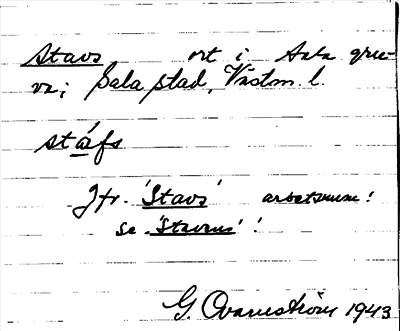 Stavs ort i Sala gru-
va; Sala stad, Västm. l.
stáfs
Jfr. 'Stavs' arbetsnum!
se 'Stavens'!
G. Ovarnström 1943